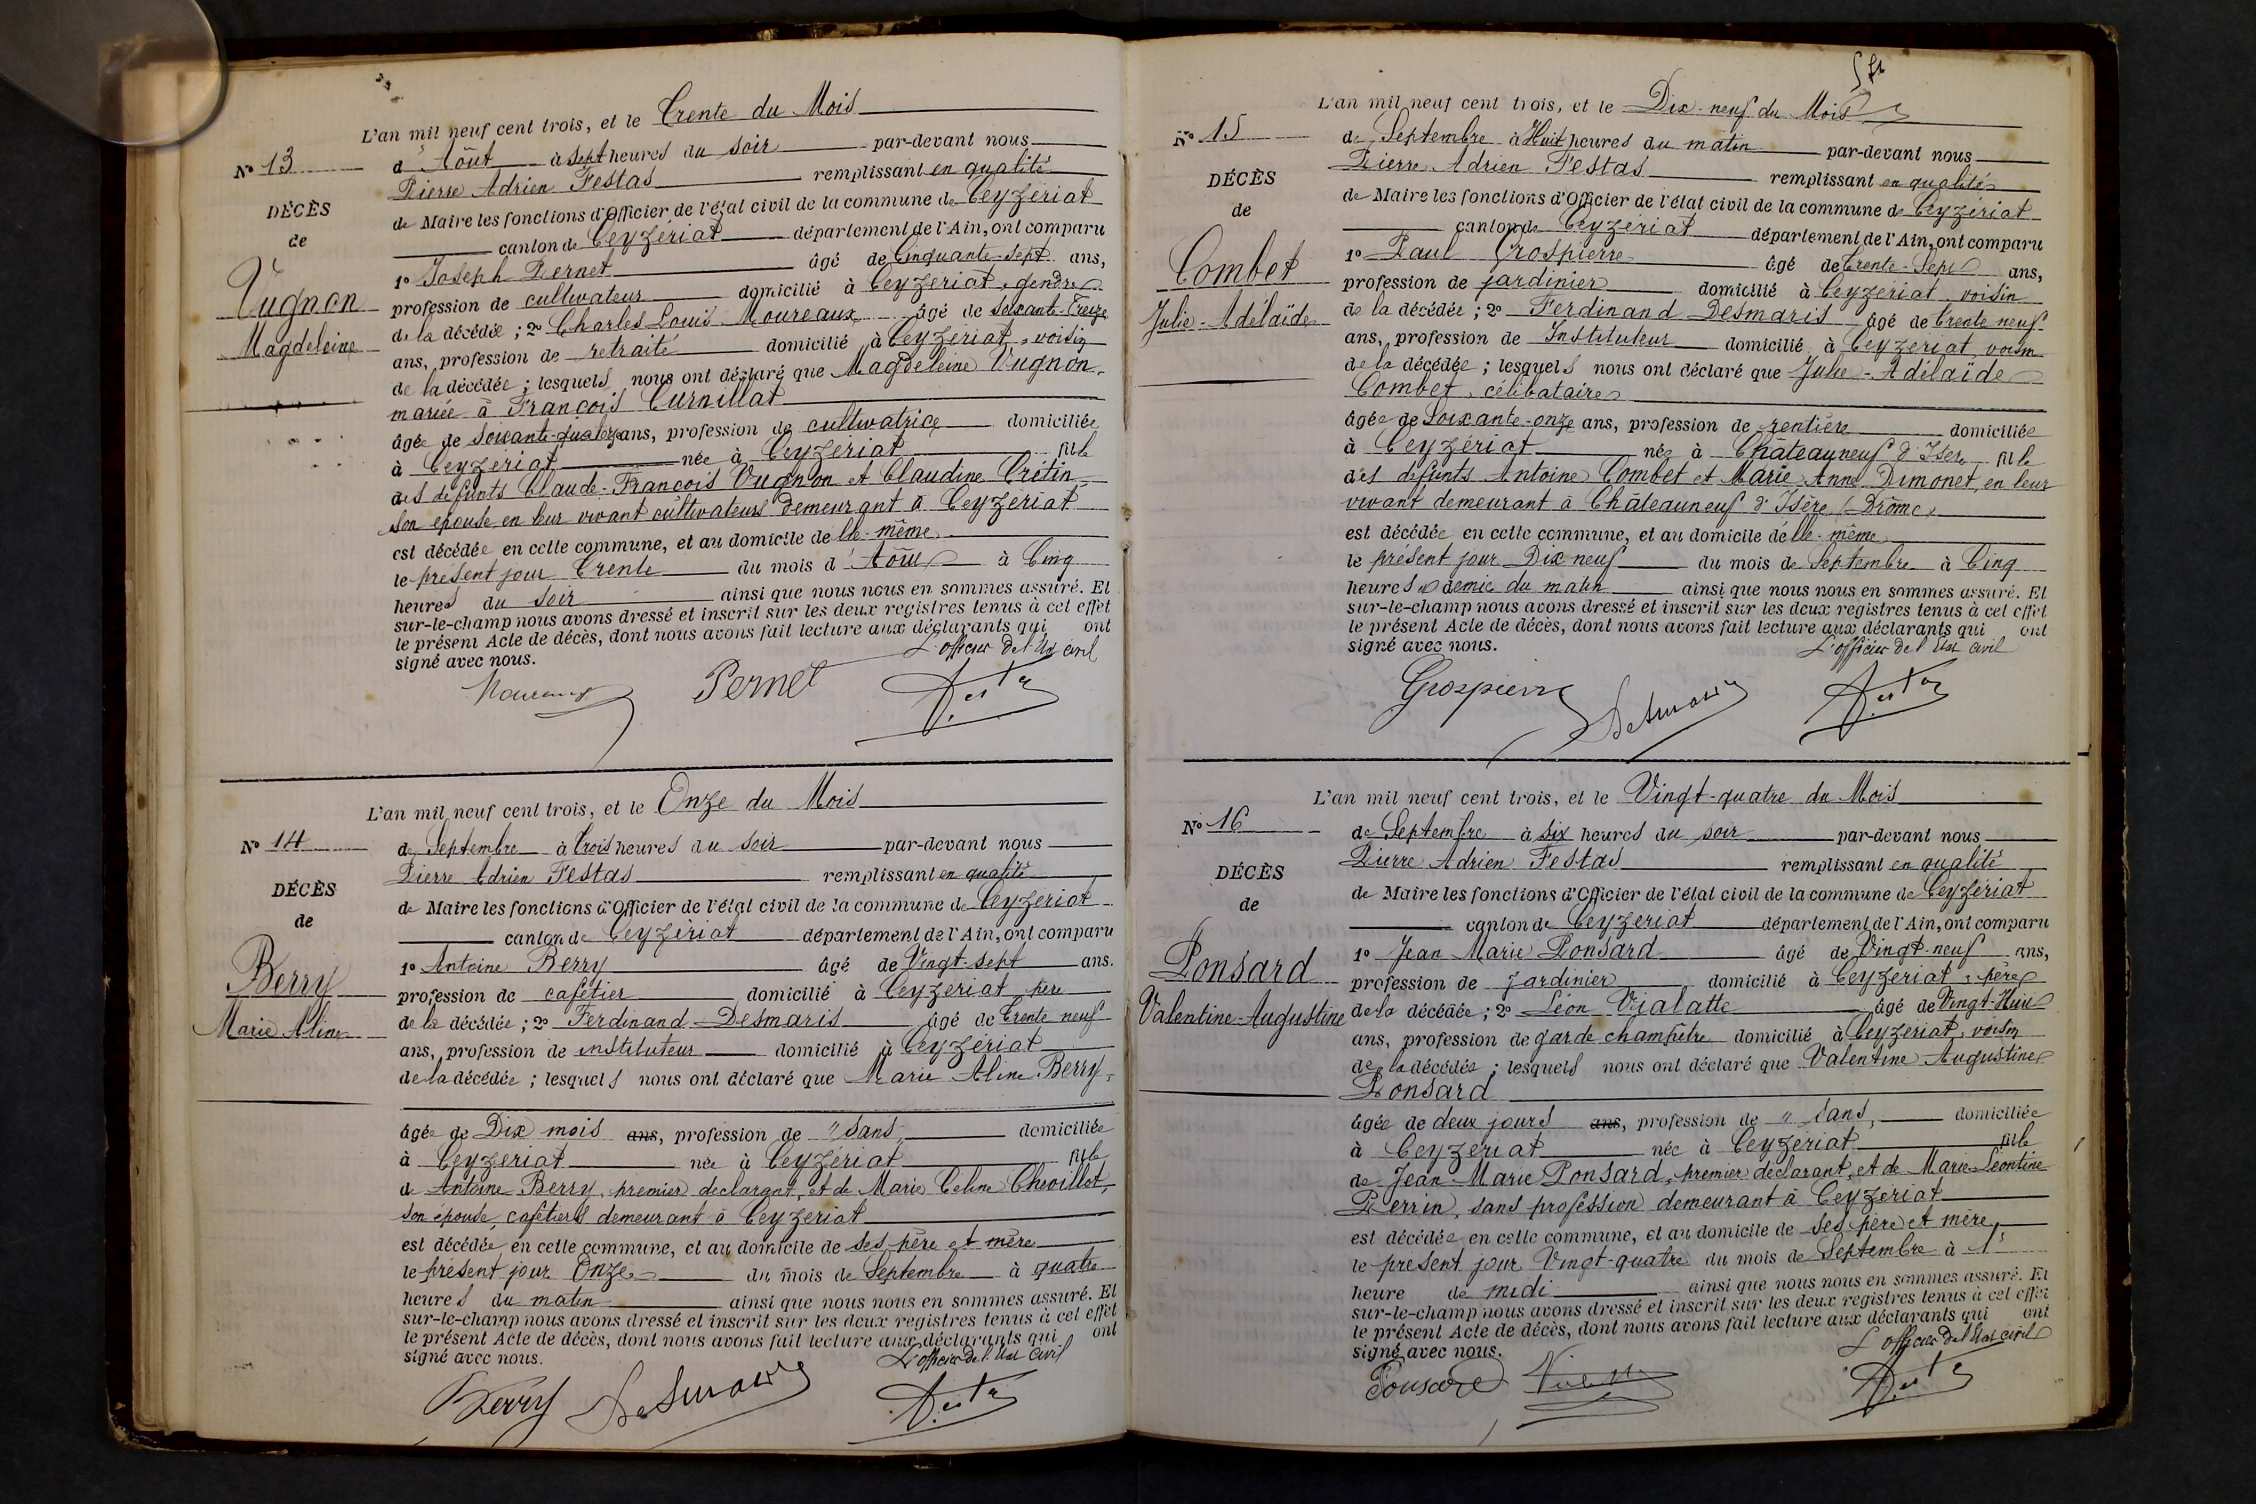 L'an mil neuf cent trois, et le Trente du Mois
N° 13
d'Août à sept heures du soir par-devant nous
Pierre Adrien Festas remplissant en qualité
DÉCÈS
de Maire les fonctions d'Officier de l'état civil de la commune de Ceyzériat
de
canton de Ceyzériat département de l'Ain, ont comparu
1° Joseph Pernet âgé de Cinquante-sept ans,
Vugnon
profession de cultivateur domicilié à Ceyzériat, gendre
de la décédée ; 2° Charles Louis Moureaux âgé de soixante-Treize
Magdeleine
ans, profession de retraité domicilié à Ceyzériat, voisin
de la décédée ; lesquels nous ont déclaré que Magdeleine Vugnon,
mariée à François Curnillat
âgée de soixante-quatorze ans, profession de cultivatrice domiciliée
à Ceyzériat née à Ceyzériat fille
des défunts Claude-François Vugnon et Claudine Crétin,
son épouse, en leur vivant cultivateurs demeurant à Ceyzériat
est décédée en cette commune, et au domicile de elle-même
le présent jour Trente du mois d'Août à Cinq
heures du soir ainsi que nous nous en sommes assuré. Et
sur-le-champ nous avons dressé et inscrit sur les deux registres tenus à cet effet
le présent Acte de décès, dont nous avons fait lecture aux déclarants qui ont
signé avec nous. L'officier de l'Etat civil
Moureaux Pernet Festas
L'an mil neuf cent trois, et le Onze du Mois
N° 14
de Septembre à Trois heures du soir par-devant nous
Pierre Adrien Festas remplissant en qualité
DÉCÈS
de Maire les fonctions d'Officier de l'état civil de la commune de Ceyzériat
de
canton de Ceyzériat département de l'Ain, ont comparu
1° Antoine Berry âgé de Vingt-sept ans.
Berry
profession de cafetier domicilié à Ceyzériat père
Marie Aline
de la décédée ; 2° Ferdinand Desmaris âgé de Trente neuf
ans, profession de instituteur domicilié à Ceyzériat
de la décédée ; lesquels nous ont déclaré que Marie Aline Berry,
âgée de Dix mois ans, profession de " sans, domiciliée
à Ceyzériat née à Ceyzériat fille
de Antoine Berry, premier déclarant, et de Marie Céline Chevillot,
son épouse, cafetiers demeurant à Ceyzériat
est décédée en cette commune, et au domicile de ses père et mère
le présent jour Onze du mois de Septembre à quatre
heures du matin ainsi que nous nous en sommes assuré. Et
sur-le-champ nous avons dressé et inscrit sur les deux registres tenus à cet effet
le présent Acte de décès, dont nous avons fait lecture aux déclarants qui ont
signé avec nous. L'officier de l'Etat civil
Berry Desmaris Festas
L'an mil neuf cent trois, et le Dix-neuf du Mois
N° 15
de Septembre à Huit heures du matin par-devant nous
Pierre Adrien Festas remplissant en qualité
DÉCÈS
de Maire les fonctions d'Officier de l'état civil de la commune de Ceyzériat
de
canton de Ceyzériat département de l'Ain, ont comparu
1° Paul Grospierre âgé de Trente-Sept ans,
Combet
profession de jardinier domicilié à Ceyzériat, voisin
Julie-Adélaïde
de la décédée ; 2° Ferdinand Desmaris âgé de Trente neuf
ans, profession de Instituteur domicilié à Ceyzériat, voisin
de la décédée ; lesquels nous ont déclaré que Julie-Adélaïde
Combet, célibataire
âgée de Soixante-onze ans, profession de rentière domiciliée
à Ceyzériat née à Châteauneuf d'Isère fille
des défunts Antoine Combet et Marie Anne Dimonet, en leur
vivant demeurant à Châteauneuf d'Isère (Drôme)
est décédée en cette commune, et au domicile d'elle-même
le présent jour Dix neuf du mois de Septembre à Cinq
heures et demie du matin ainsi que nous nous en sommes assuré. Et
sur-le-champ nous avons dressé et inscrit sur les deux registres tenus à cet effet
le présent Acte de décès, dont nous avons fait lecture aux déclarants qui ont
signé avec nous. L'officier de l'Etat civil
Grospierre Desmaris Festas
L'an mil neuf cent trois, et le Vingt-quatre du Mois
N° 16
de Septembre à six heures du soir par-devant nous
Pierre Adrien Festas remplissant en qualité
DÉCÈS
de Maire les fonctions d'Officier de l'état civil de la commune de Ceyzériat
de
canton de Ceyzériat département de l'Ain, ont comparu
1° Jean Marie Ponsard âgé de Vingt-neuf ans,
Ponsard
profession de jardinier domicilié à Ceyzériat, père
Valentine-Augustine
de la décédée ; 2° Léon Vialatte âgé de Vingt-Huit
ans, profession de garde champêtre domicilié à Ceyzériat, voisin
de la décédée ; lesquels nous ont déclaré que Valentine Augustine
Ponsard
âgée de deux jours ans, profession de " sans, domiciliée
à Ceyzériat née à Ceyzériat fille
de Jean-Marie Ponsard, premier déclarant, et de Marie-Léontine
Perrin, sans profession demeurant à Ceyzériat
est décédée en cette commune, et au domicile de ses père et mère,
le présent jour Vingt-quatre du mois de Septembre à
heure de midi ainsi que nous nous en sommes assuré. Et
sur-le-champ nous avons dressé et inscrit sur les deux registres tenus à cet effet
le présent Acte de décès, dont nous avons fait lecture aux déclarants qui ont
signé avec nous. L'officier de l'Etat civil
Ponsard Vialatte Festas